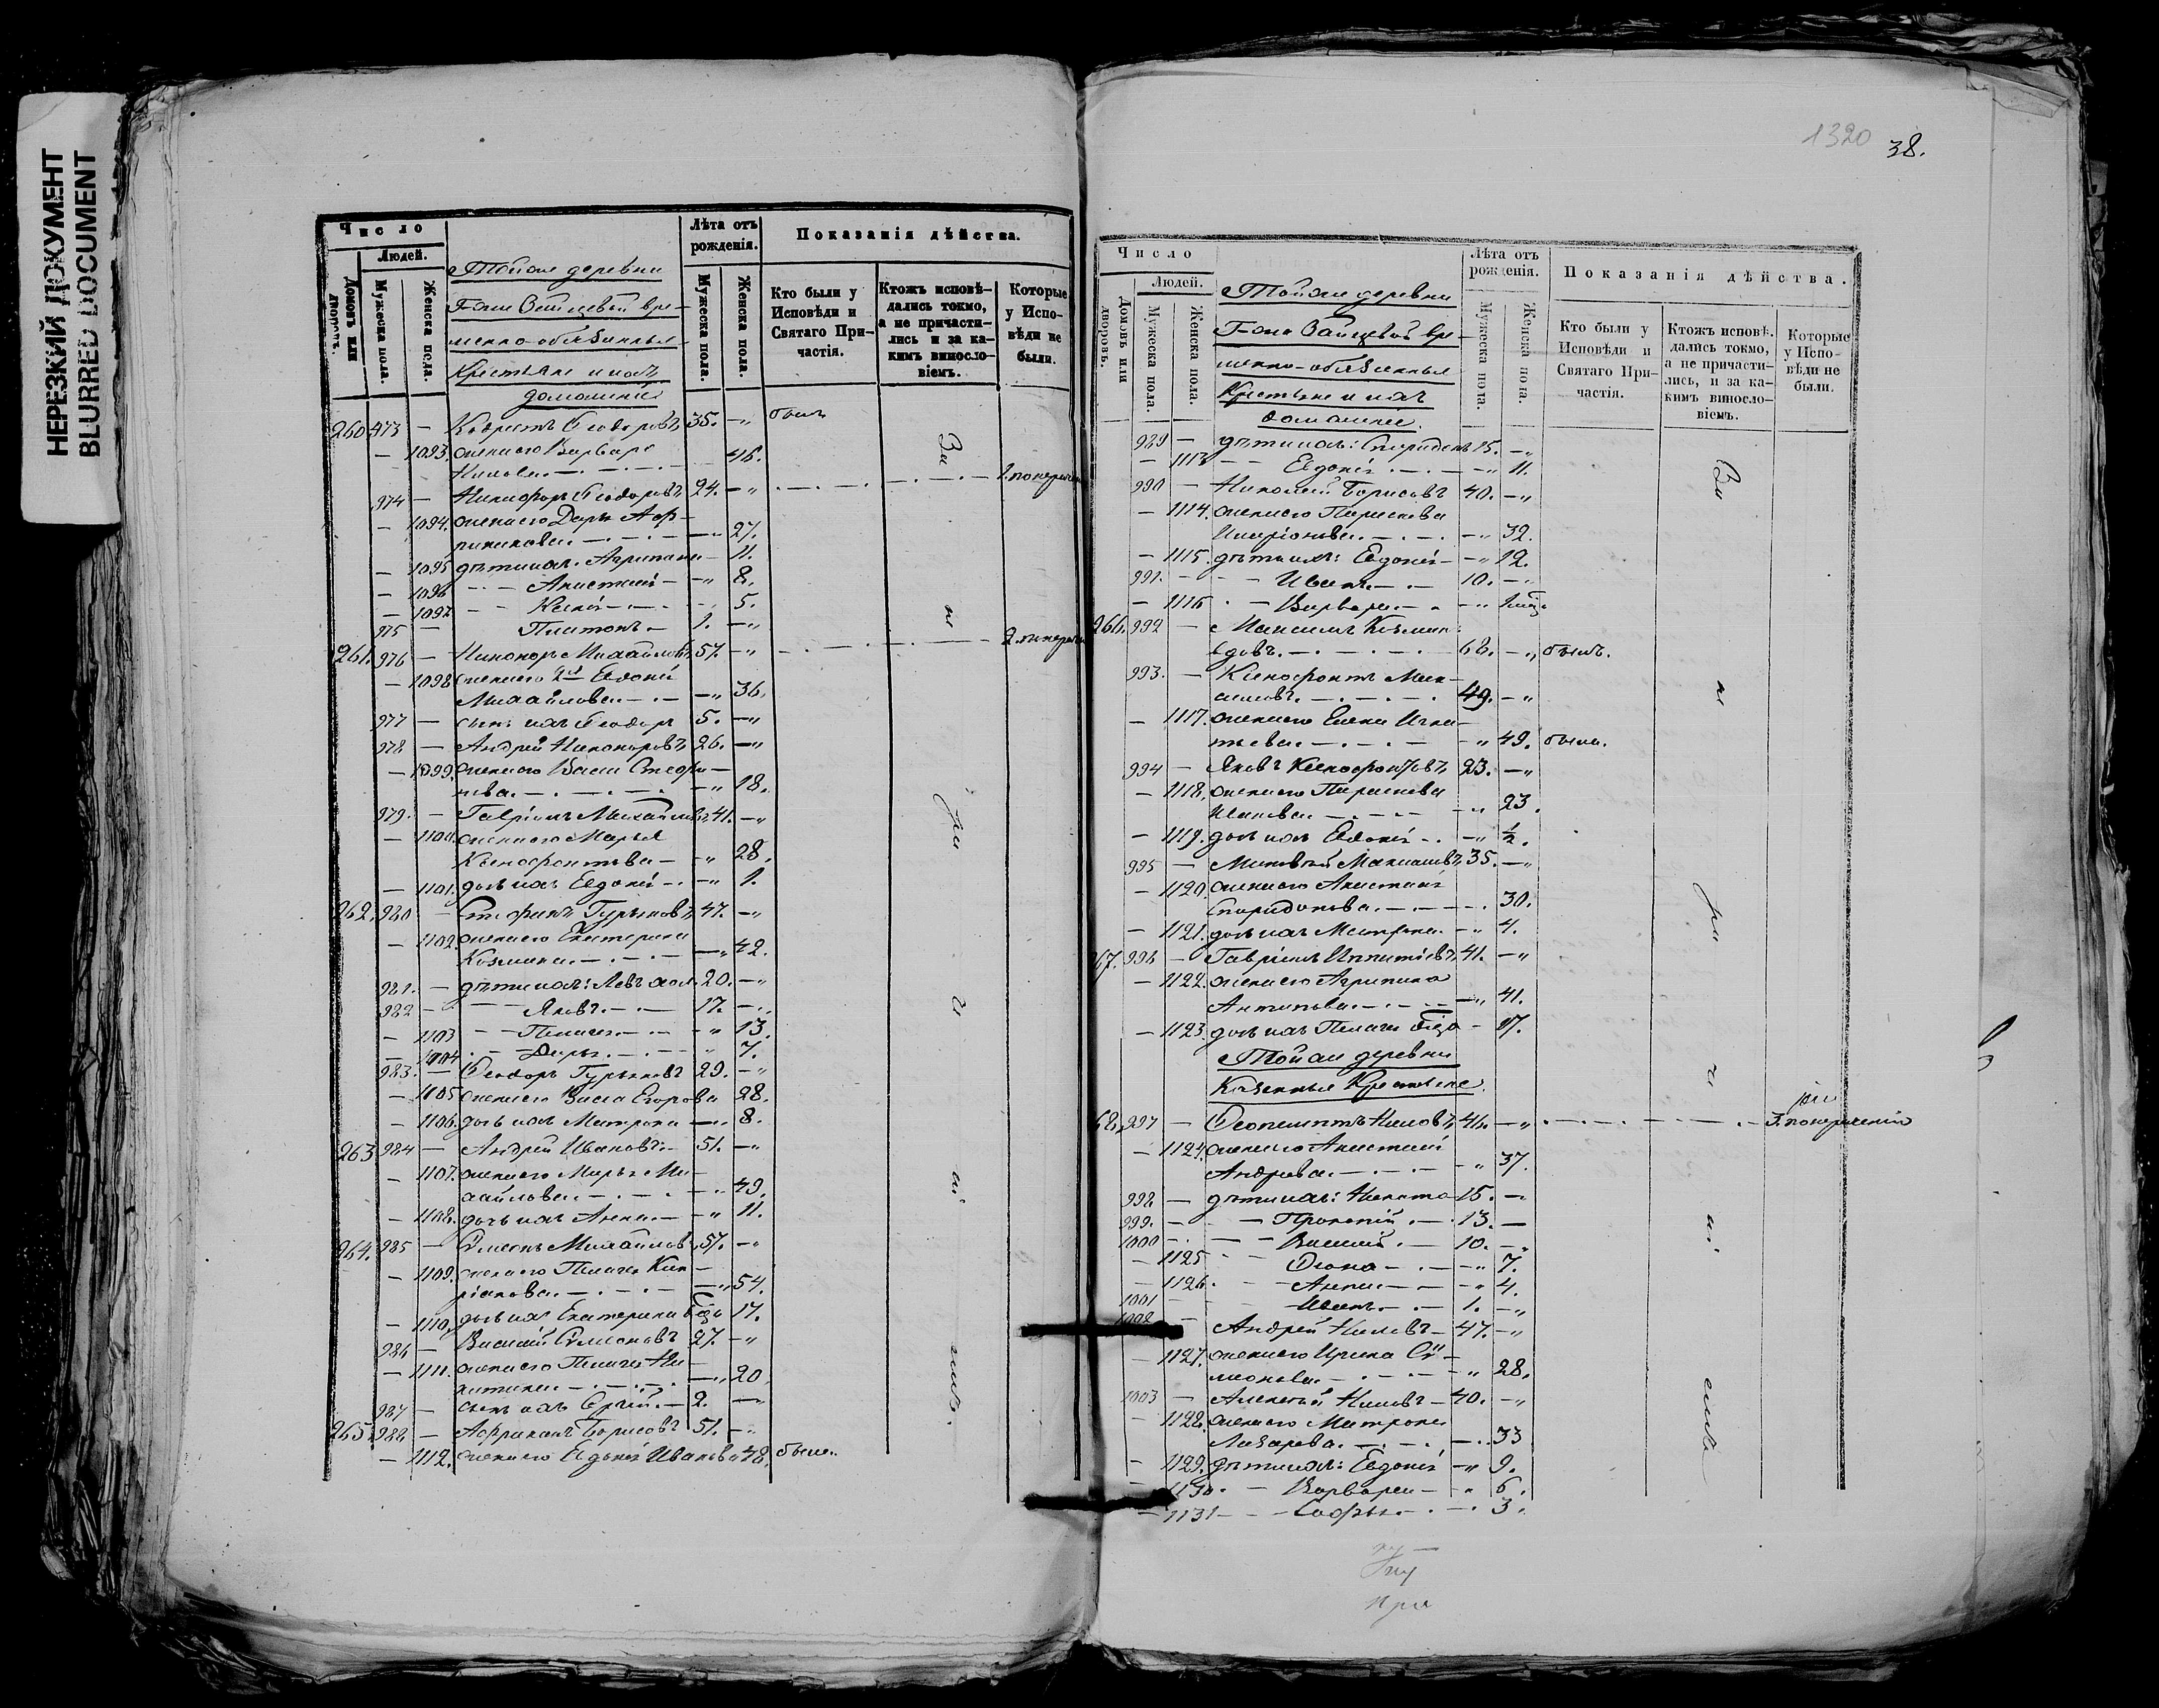 НЕРЕЗКИЙ ДОКУМЕНТ
BLURRED DOCUMENT
Число
Людей.
Домовъ или дворовъ.
Мужеска пола.
Женска пола.
Тойже деревни
Г-жи Зайцевой вре-
менно-обязанные
Крестьяне и ихъ
домашніе
Лѣта отъ рожденія.
Мужеска пола.
Женска пола.
Показанія дѣйства.
Кто были у Исповѣди и Святаго При-частія.
Ктожъ исповѣ-дались токмо, а не причасти-лись и за ка-кимъ винosло-віемъ.
Которые у Испо-вѣди не были.
260. 973 — Ѳеодоровъ 35. —„ былъ
— 1093. жена его Варвара
46.
974 — Никифоръ Ѳеодоровъ 24. —„
— 1094. жена его Дарья
27.
— 1095 дѣти ихъ: Агрипина — 11.
— 1096 Анастасія — „ 8.
— 1097 Ксенія 5.
975 — Платонъ — 1. —„
261. 976 — Никоноръ Михайловъ 57. —„
— 1098 жена его 2я Евдокія
Михайлова — „ 36.
977 — сынъ ихъ Ѳеодоръ 5. —„
978 — Андрей Никоноровъ 26. —„
— 1099 жена его Васса Стефа-
нова. — „ 18.
979. — Гавріилъ Михайловъ 41. —„
— 1100. жена его Марья
Ксенофонтова — „ 28.
— 1101. дочь ихъ Евдокія — „ 1.
262. 980 — Стефанъ Гурьяновъ 47. —„
— 1102 жена его Екатерина
Козмина. — „ 42.
981. — дѣти ихъ: Левъ хол. 20. —„
982 — Яковъ. — 17. —
— 1103 Пелагея „ 13.
— 1104 Дарья 7.
983. — Ѳеодоръ Гурьяновъ 29. —„
— 1105 жена его Васса Егорова 28.
— 1106. дочь ихъ Матрона — „ 8.
263. 984 — Андрей Ивановъ 51. —„
— 1107. жена его Марья Ми-
хайлова. — „ 49.
— 1108. дочь ихъ Анна. — „ 11.
264. 985 — Симеонъ Михайловъ 57. —„
— 1109. жена его Пелагея Кип-
ріанова. — „ 54.
— 1110. дочь ихъ Екатерина 17.
986 — Василій Симеоновъ 27. —„
— 1111. жена его Пелагея Ни-
китина — „ 20
987 — сынъ ихъ 2. —
265. 988 — Африканъ Борисовъ 51. —„
— 1112. жена его Евдокія Иванова 48. была.
За не ра че ні емъ.
1320 38.
Число
Людей.
Домовъ или дворовъ.
Мужеска пола.
Женска пола.
Тойже деревни
Г-жи Зайцевой вре-
менно-обязанные
Крестьяне и ихъ
домашніе.
Лѣта отъ рожденія.
Мужеска пола.
Женска пола.
Показанія дѣйства.
Кто были у Исповѣди и Святаго При-частія.
Ктожъ исповѣ-дались токмо, а не причасти-лись, и за ка-кимъ винosло-віемъ.
Которые у Испо-вѣди не были.
989 — дѣти ихъ: Спиридонъ 15. —„
— 1113 Евдокія „ 11.
990 — Николай Борисовъ 40. —„
— 1114. жена его Параскева
— „ 32.
— 1115. дѣти ихъ: Евдокія — „ 12.
991. — Иванъ — 10. —„
— 1116 — Варвара
266. 992 — Максимъ Козмин
вдовъ. 68. —„ былъ.
993. — Ксенофонтъ Мак-
симовъ. 49. —„
— 1117. жена его Елена Игна-
тьева. — „ 49. была.
994 — Яковъ Ксенофонтовъ 23. —„
— 1118. жена его Параскева
Иванова — „ 23.
— 1119. дочь ихъ Евдокія — „ ½.
995 — Максимовъ 35. —„
— 1120. жена его Анастасія
Спиридонова. 30.
— 1121. дочь ихъ Матрона. — „ 4.
67. 996 — Гавріилъ Ипатіевъ 41. —„
— 1122. жена его Агрипина
Антипова. — „ 41.
— 1123. дочь ихъ Пелагея 17.
Тойже деревни
Казенные Крестьяне.
68. 997 — Ѳеопемптъ Ниловъ 46. —„
— 1124. жена его Анастасія
Андреева. „ 37.
998 — дѣти ихъ: Никита 15. —
999. — Прокопій. — 13. —
1000 — Василій. — 10. —„
— 1125 Ѳекла — „ 7.
— 1126. Анна. — „ 4.
1001 Иванъ. — 1. —„
Андрей Ниловъ — 47. —„
— 1127. жена его Ирина Си-
меонова. „ 28.
1003 — Алексѣй Ниловъ — 40. —„
— 1128. жена его Матрона
Лазарева. 33
— 1129. дѣти ихъ: Евдокія — „ 9.
1130. — Варвара — „ 6.
— 1131 — Софья. — 3.
За не ра че ні емъ
при